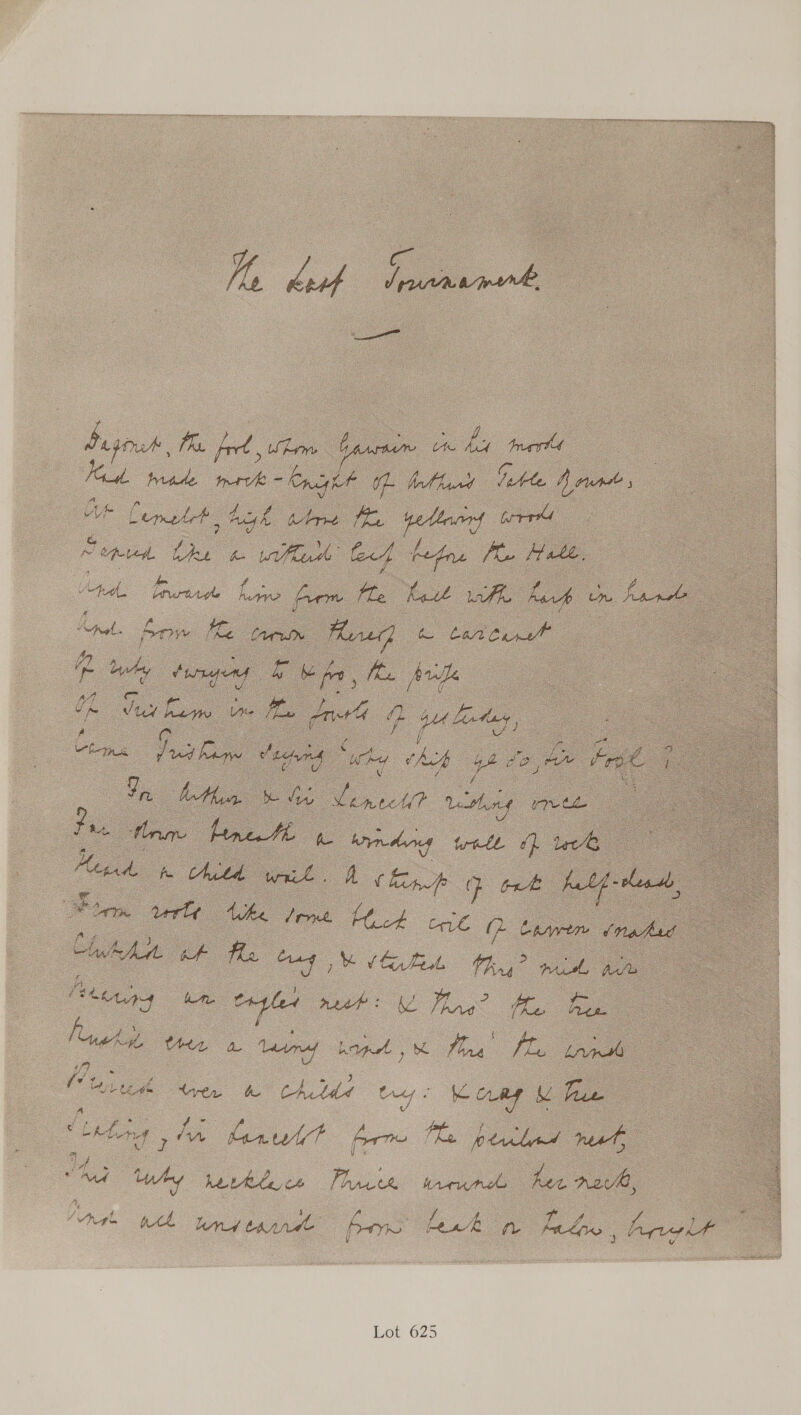 The Last Tournament.
Dagonet, the fool, whom Gawain in his moods
Had made mock-knight of Arthur's Table Round,
At Camelot, high above the yellowing woods
Danced like a wither'd leaf before the Hall.
And toward him from the hall with harp in hand
And from the crown thereof a carcanet
Of ruby swaying to & fro, the prize
Of Tristram in the jousts of yesterday,
Came Tristram saying 'why skip ye so, Sir Fool?
For Arthur & Sir Lancelot riding once
Far down beneath a winding wall of rock
Heard a child wail. A stump of oak half-dead,
From roots like some black coil of carven snakes
Clutch'd at the crag, & started thro' mid air
Bearing an eagle's nest: & thro' the tree
Rush'd ever a rainy wind, & thro' the wind
Pierced ever a child's cry: & crag & tree
Scaling, Sir Lancelot from the perilous nest,
This ruby necklace thrice around her neck,
And all unscarr'd from beak or talon, brought
Lot 625